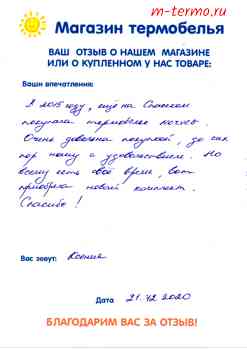 m-termo.ru
Магазин термобелья
ВАШ ОТЗЫВ О НАШЕМ МАГАЗИНЕ
ИЛИ О КУПЛЕННОМ У НАС ТОВАРЕ:
Ваши впечатления:
В 2015 году, ещё на Спасском
покупала термобелье
Очень довольна покупкой, до сих
пор ношу с удовольствием. Но
всему есть своё время, вот
приобрела новый комплект.
Спасибо!
Вас зовут: Ксения
Дата 21.12.2020
БЛАГОДАРИМ ВАС ЗА ОТЗЫВ!